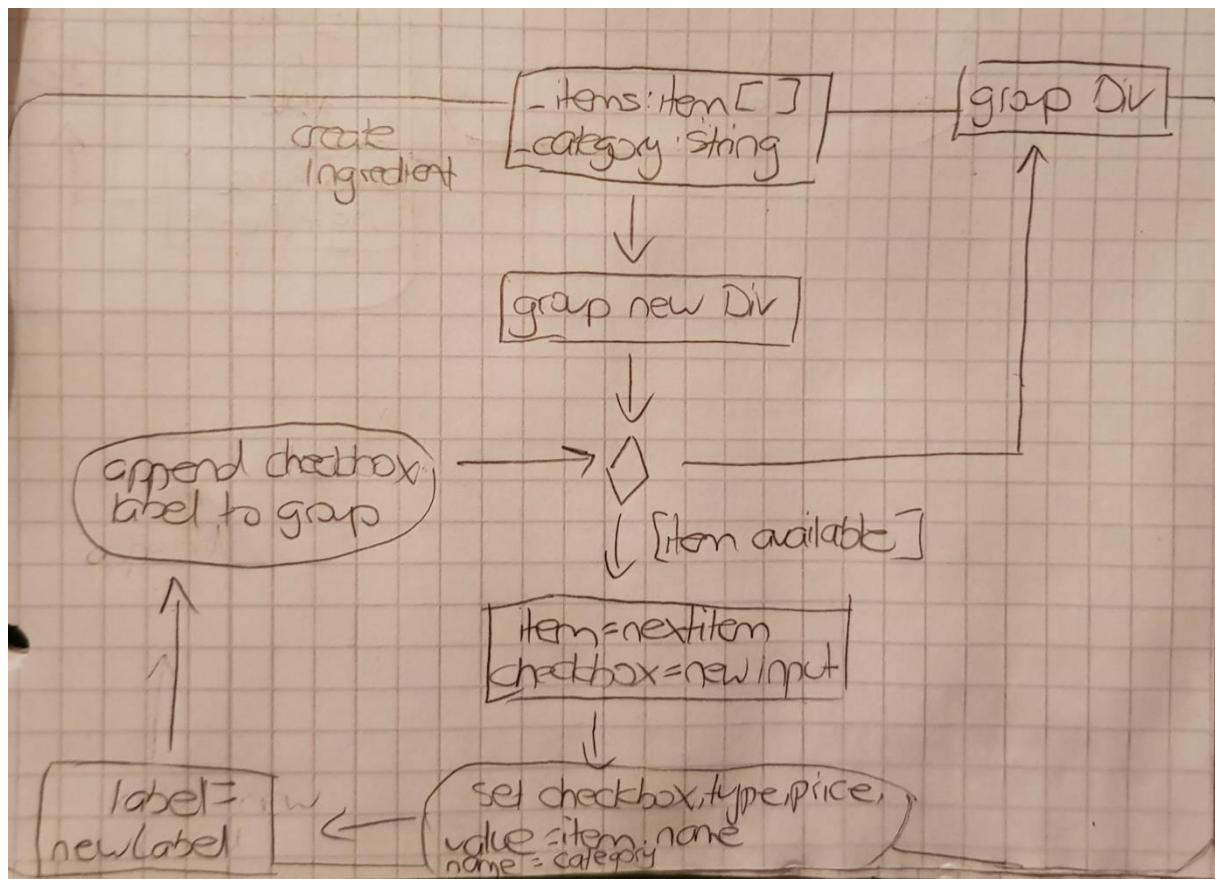 create
ingredient
_items:item[ ]
_category:String
group Div
group new Div
append checkbox,
label to group
[item available]
item=nextitem
checkbox=new input
set checkbox,type,price,
value=item.name
name=category
label=
newLabel